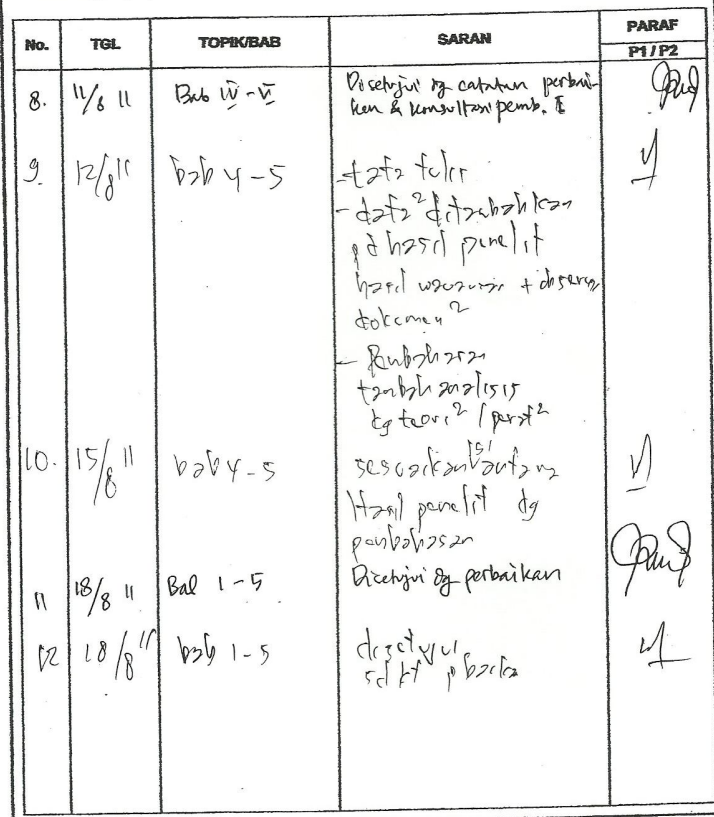 No. TGL TOPIK/BAB SARAN PARAF
P1 / P2
8. 11/8 11 Bab IV - V Disetujui dg catatan perbai-
kan & konsultasi pemb. I
9. 12/8 11 bab 4 - 5 - tata tulis
- data² ditambahkan
pd hasil penelit
hasil wawancara + observasi
dokumen²
- Pembahasan
tambah analisis
dg teori² /
10. 15/8 11 bab 4 - 5 sesuaikan isi antara
Hasil penelit dg
pembahasan
11 18/8 11 Bab 1 - 5 Disetujui dg perbaikan
12 18/8 11 bab 1 - 5 disetujui